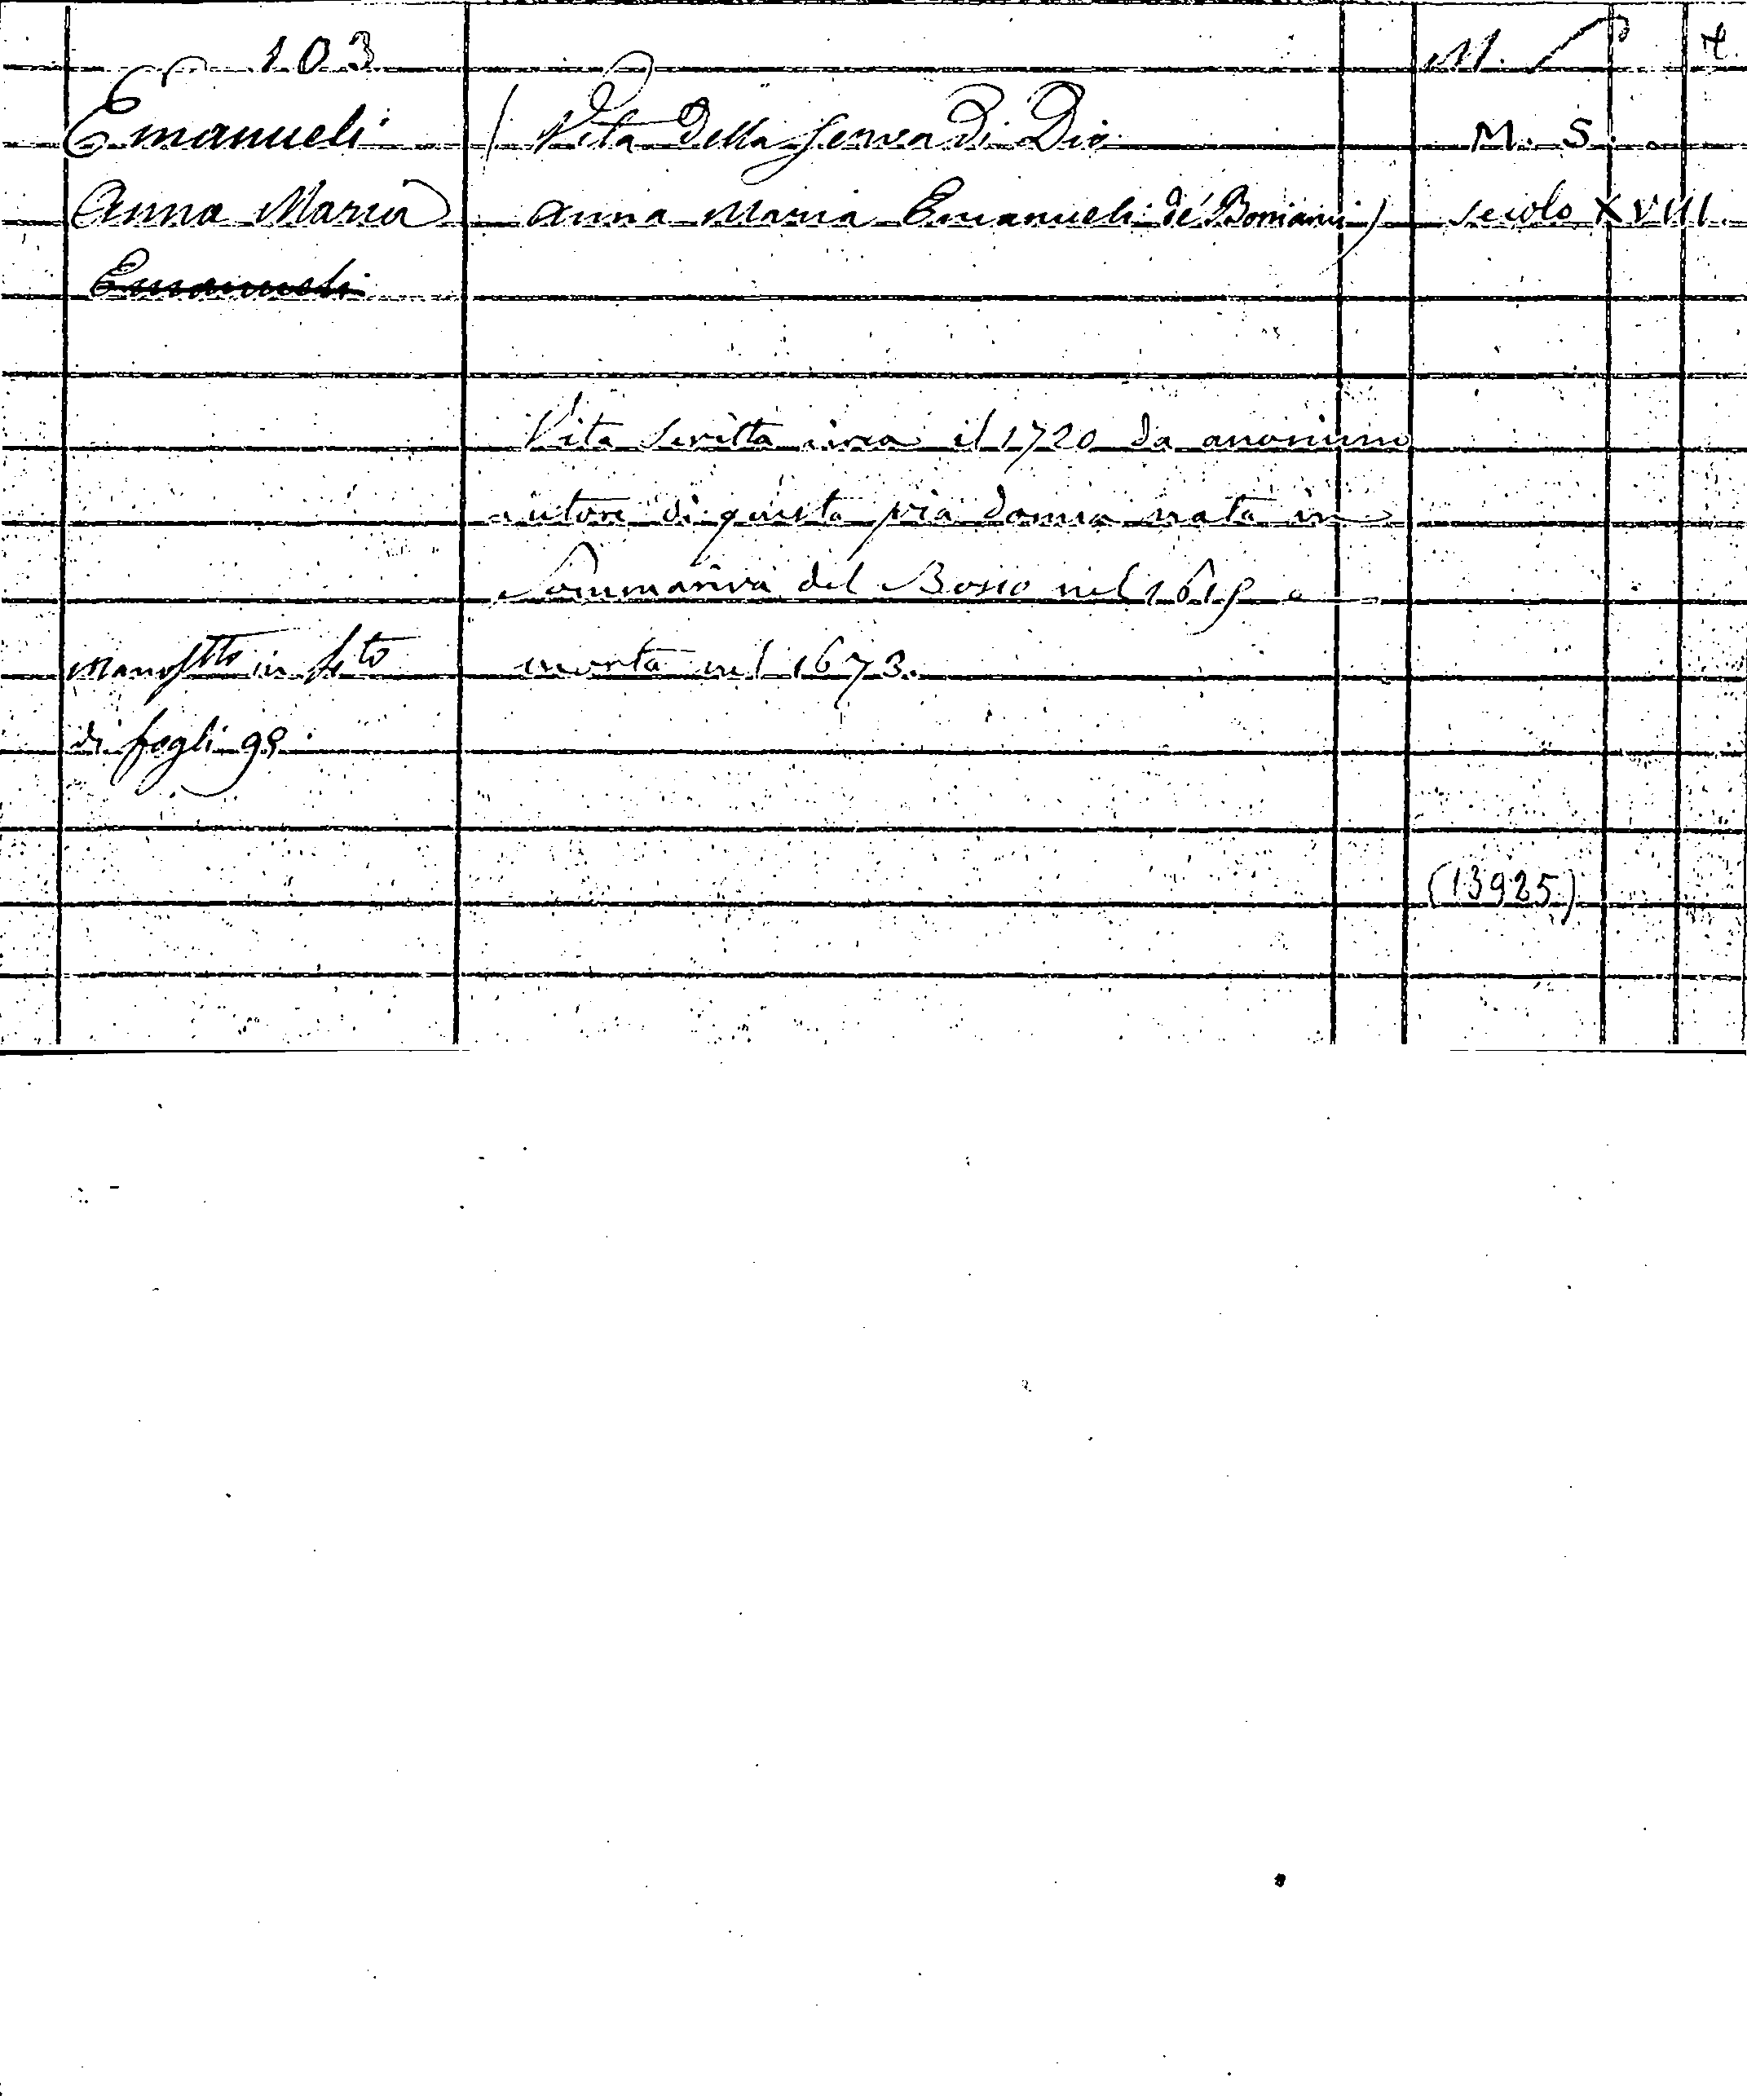 103
M. S. 7
Emanueli
(Vita della Serva di Dio
M. S.
Anna Maria
Anna Maria Emanueli de' Boniani)
secolo XVIII.
Emanueli
Vita scritta circa il 1720 da anonimo
autore di questa pia donna nata in
Sommariva del Bosco nel 1619 e
manostto in 4to
morta nel 1673.
di fogli 98.
(13925)